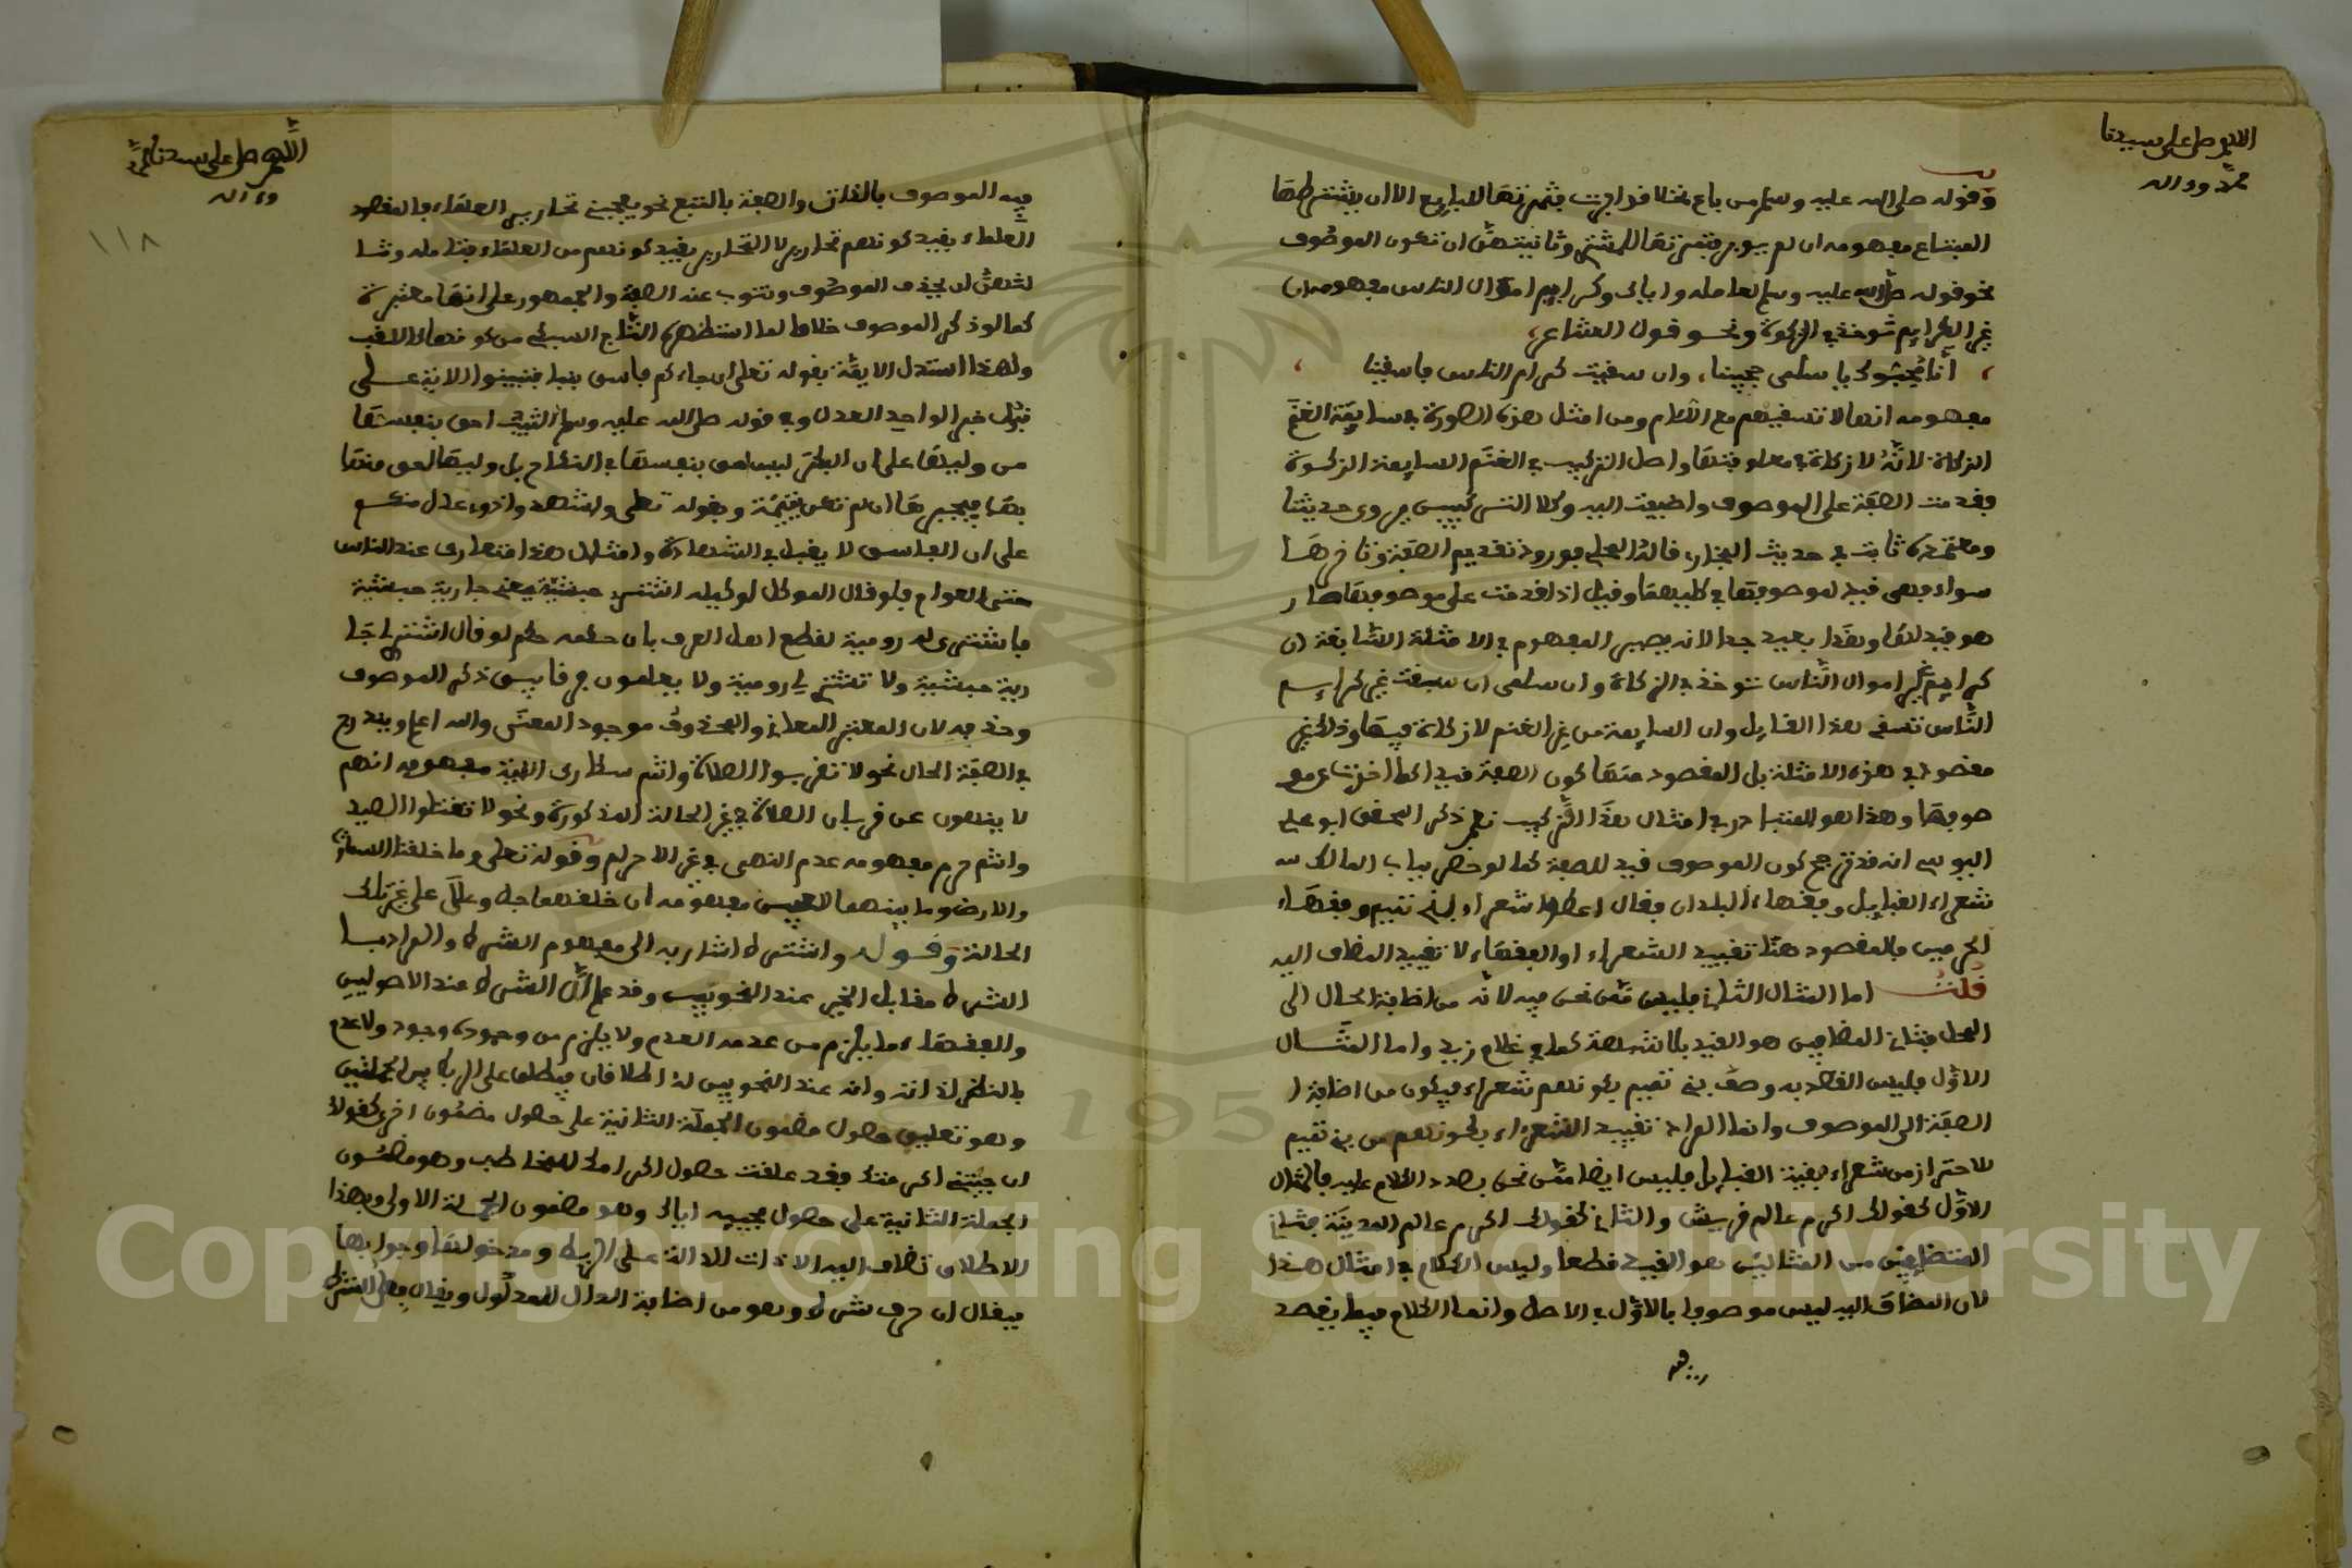 اللهم صل على سيدنا
محمد وءاله
وقوله صلى الله عليه وسلم من باع نخلا قد ابرت فثمرتها للبايع الا ان يشترطها
المبتاع مفهومه ان لم يوبر فثمرتها للمشتري وثانيتهن ان تكون الموصوف
نحو قوله صلى الله عليه وسلم لعامله واياك وكرايم اموال الناس مفهومه ان
غير الكرايم توخذ في الزكوة ونحو قول الشاعر
انا محيوك يا سلمى فحيينا وان سقيت كرام الناس فاسقينا
مفهومه انها لا تسقيهم مع اللئام ومن امثل هذه الصورة في سايمة الغنم
الزكاة لانه لا زكاة في معلوفتها واصل التركيب في الغنم السايمة الزكوة
فقدمت الصفة على الموصوف واضيفت اليه وكلا التركيبين مروي حديثا
ومعتمده ثابت في حديث البخاري قاله المحلي فورود تقديم الصفة وتاخرها
سواء فهي قيد لموصوفها في كليهما وقيل اذا قدمت على موصوفها صار
هو قيد لها وهذا بعيد جدا لانه يصير المفهوم في الامثلة السابقة ان
كرايم غير اموال الناس توخذ في الزكاة وان سلمى ان سقت غير كرايم
الناس تسقي هذا القايل وان السايمة من غير الغنم لا زكاة فيها وذلك غير
مقصود في هذه الامثلة بل المقصود منها كون الصفة قيد اكما اخرت عن مو
صوفها وهذا هو المتبادر في امثال هذا التركيب نعم ذكر المحقق ابو علي
اليوسي انه قد يترجح كون الموصوف قيد للصفة كما لو حضر بباب المالك
شعراء القبايل وفقهاء البلدان فقال اعطوا شعراء بني تميم وفقهاء
الحرمين فالمقصود هنا تقييد الشعراء او الفقهاء لا تقييد المضاف اليه
قلت اما المثال الثاني فليس مما نحن فيه لانه من اضافة الحال الى
المحل فثاني المضافين هو القيد بلا شبهة كما في غلام زيد واما المثال
الاول فليس القصد به وصف بني تميم بكونهم شعراء فيكون من اضافة ا
الصفة الى الموصوف وانما المراد تقييد الشعراء بكونهم من بني تميم
للاحتراز من شعراء بقية القبايل فليس ايضا مما نحن بصدد الكلام عليه فالمثال
الاول كقولك اكرم عالم قريش والثاني كقولك اكرم عالم المدينة فثاني
المتضايفين من المثالين هو القيد قطعا وليس الكلام في امثال هذا
لان المضاف اليه ليس موصوفا بالاول في الاصل وانما الكلام فيما يقصد
فيه
اللهم صل على سيدنا محمد
وءاله
١١٨
فيه الموصوف بالذات والصفة بالتبع نحو يعجبني نحارير العلماء فالمقصود
العلماء بقيد كونهم نحارير لا النحارير بقيد كونهم من العلماء فتامله وثا
لثتهن ان يحذف الموصوف وتنوب عنه الصفة والجمهور على انها معتبرة
كما لو ذكر الموصوف خلافا لما استظهره التاج السبكي من كونها كاللقب
ولهذا استدل الايمة بقوله تعلى ان جاءكم فاسق بنبا فتبينوا الاية على
قبول خبر الواحد العدل وفي قوله صلى الله عليه وسلم الثيب احق بنفسها
من وليها على ان البكر ليس احق بنفسها في النكاح بل وليها احق منها
بها فيجبرها ان لم تكن يتيمة وبقوله تعلى واشهدوا ذوي عدل منكم
على ان الفاسق لا يقبل في الشهادة وامثال هذا متعارف عند الناس
حتى العوام فلو قال الموكل لوكيله اشتر حبشية يعني جارية حبشية
فاشترى له رومية لقطع اهل العرف بان حكمه حكم لو قال اشتر لي جا
رية حبشية ولا تشتر لي رومية ولا يعلمون فرقا بين ذكر الموصوف
وحذفه لان المعتبر المعاني والمحذوف موجود المعنى والله اعلم ويندرج
في الصفة الحال نحو لا تقربوا الصلاة وانتم سكارى الاية مفهومه انهم
لا ينهون عن قربان الصلاة في غير الحالة المذكورة ونحو لا تقتلوا الصيد
وانتم حرم مفهومه عدم النهي في غير الاحرام وقوله تعلى وما خلقنا السماء
والارض وما بينهما لاعبين مفهومه ان خلقهما جل وعلا على غير تلك
الحالة وقوله واشترط اشار به الى مفهوم الشرط والمراد با
الشرط مقابل الخبر عند النحويين وقد علم ان الشرط عند الاصوليين
والفقهاء ما يلزم من عدمه العدم ولا يلزم من وجوده وجود ولا عدم
بالنظر لذاته وانه عند النحويين له اطلاقان فيطلق على الربط بين الجملتين
وهو تعليق حصول مضمون الجملة الثانية على حصول مضمون اخرى كقولك
ان جيتني اكرمتك فقد علقت حصول اكرامك للمخاطب وهو مضمون
الجملة الثانية على حصول مجييه اياك وهو مضمون الجملة الاولى وبهذا
الاطلاق تضاف اليه الادات الدالة على الربط ومدخولها وجوابها
فيقال ان حرف شرط وهو من اضافة الدال للمدلول ويقال فعل الشرط